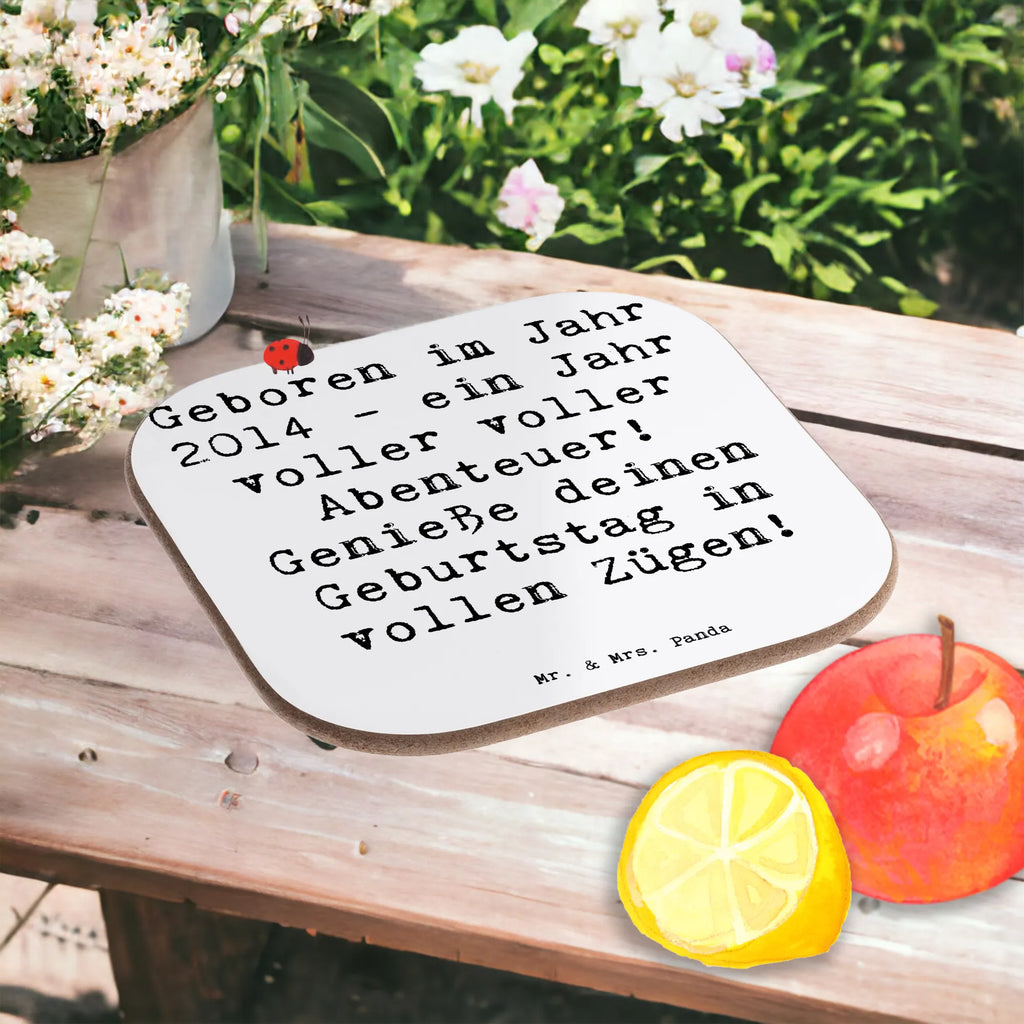 Geboren im Jahr
2014 - ein Jahr
voller voller
Abenteuer!
Genieße deinen
Geburtstag in
vollen Zügen!
Mr. & Mrs. Panda